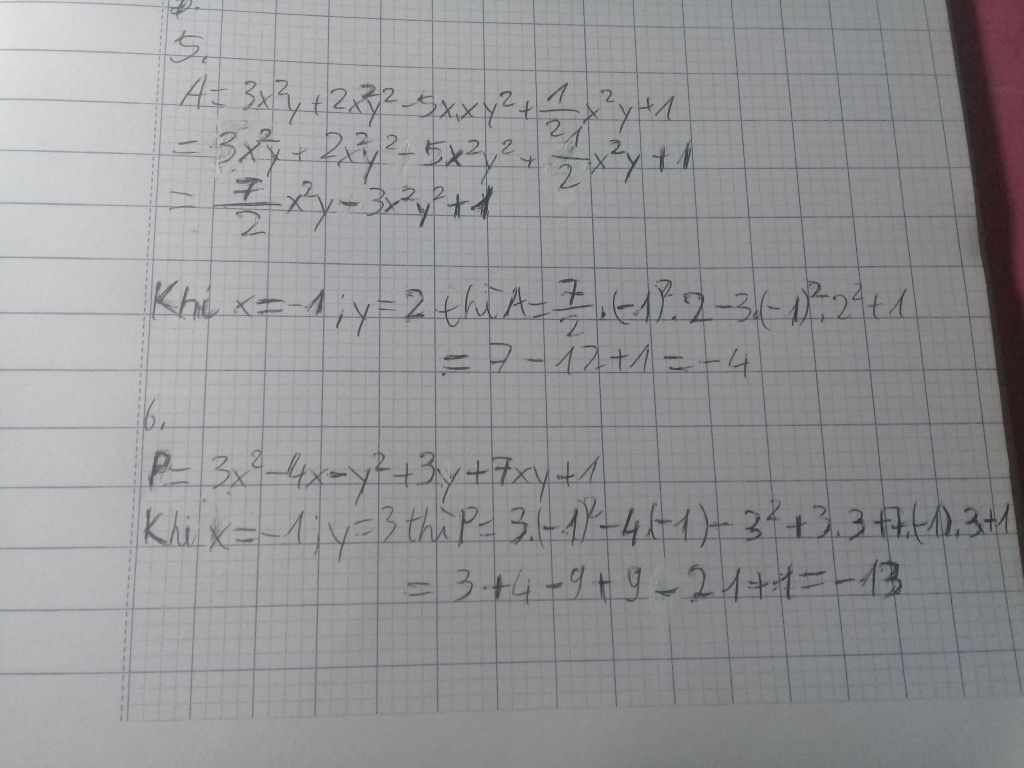 5.
A = 3x²y + 2x²y² - 5x.xy² + 1/2 x²y + 1
= 3x²y + 2x²y² - 5x²y² + 1/2 x²y + 1
= 7/2 x²y - 3x²y² + 1
Khi x = -1 ; y = 2 thì A = 7/2 . (-1)² . 2 - 3.(-1)² . 2² + 1
= 7 - 12 + 1 = -4
6.
P = 3x² - 4x - y² + 3y + 7xy + 1
Khi x = -1 ; y = 3 thì P = 3.(-1)² - 4.(-1) - 3² + 3.3 + 7.(-1).3 + 1
= 3 + 4 - 9 + 9 - 21 + 1 = -13